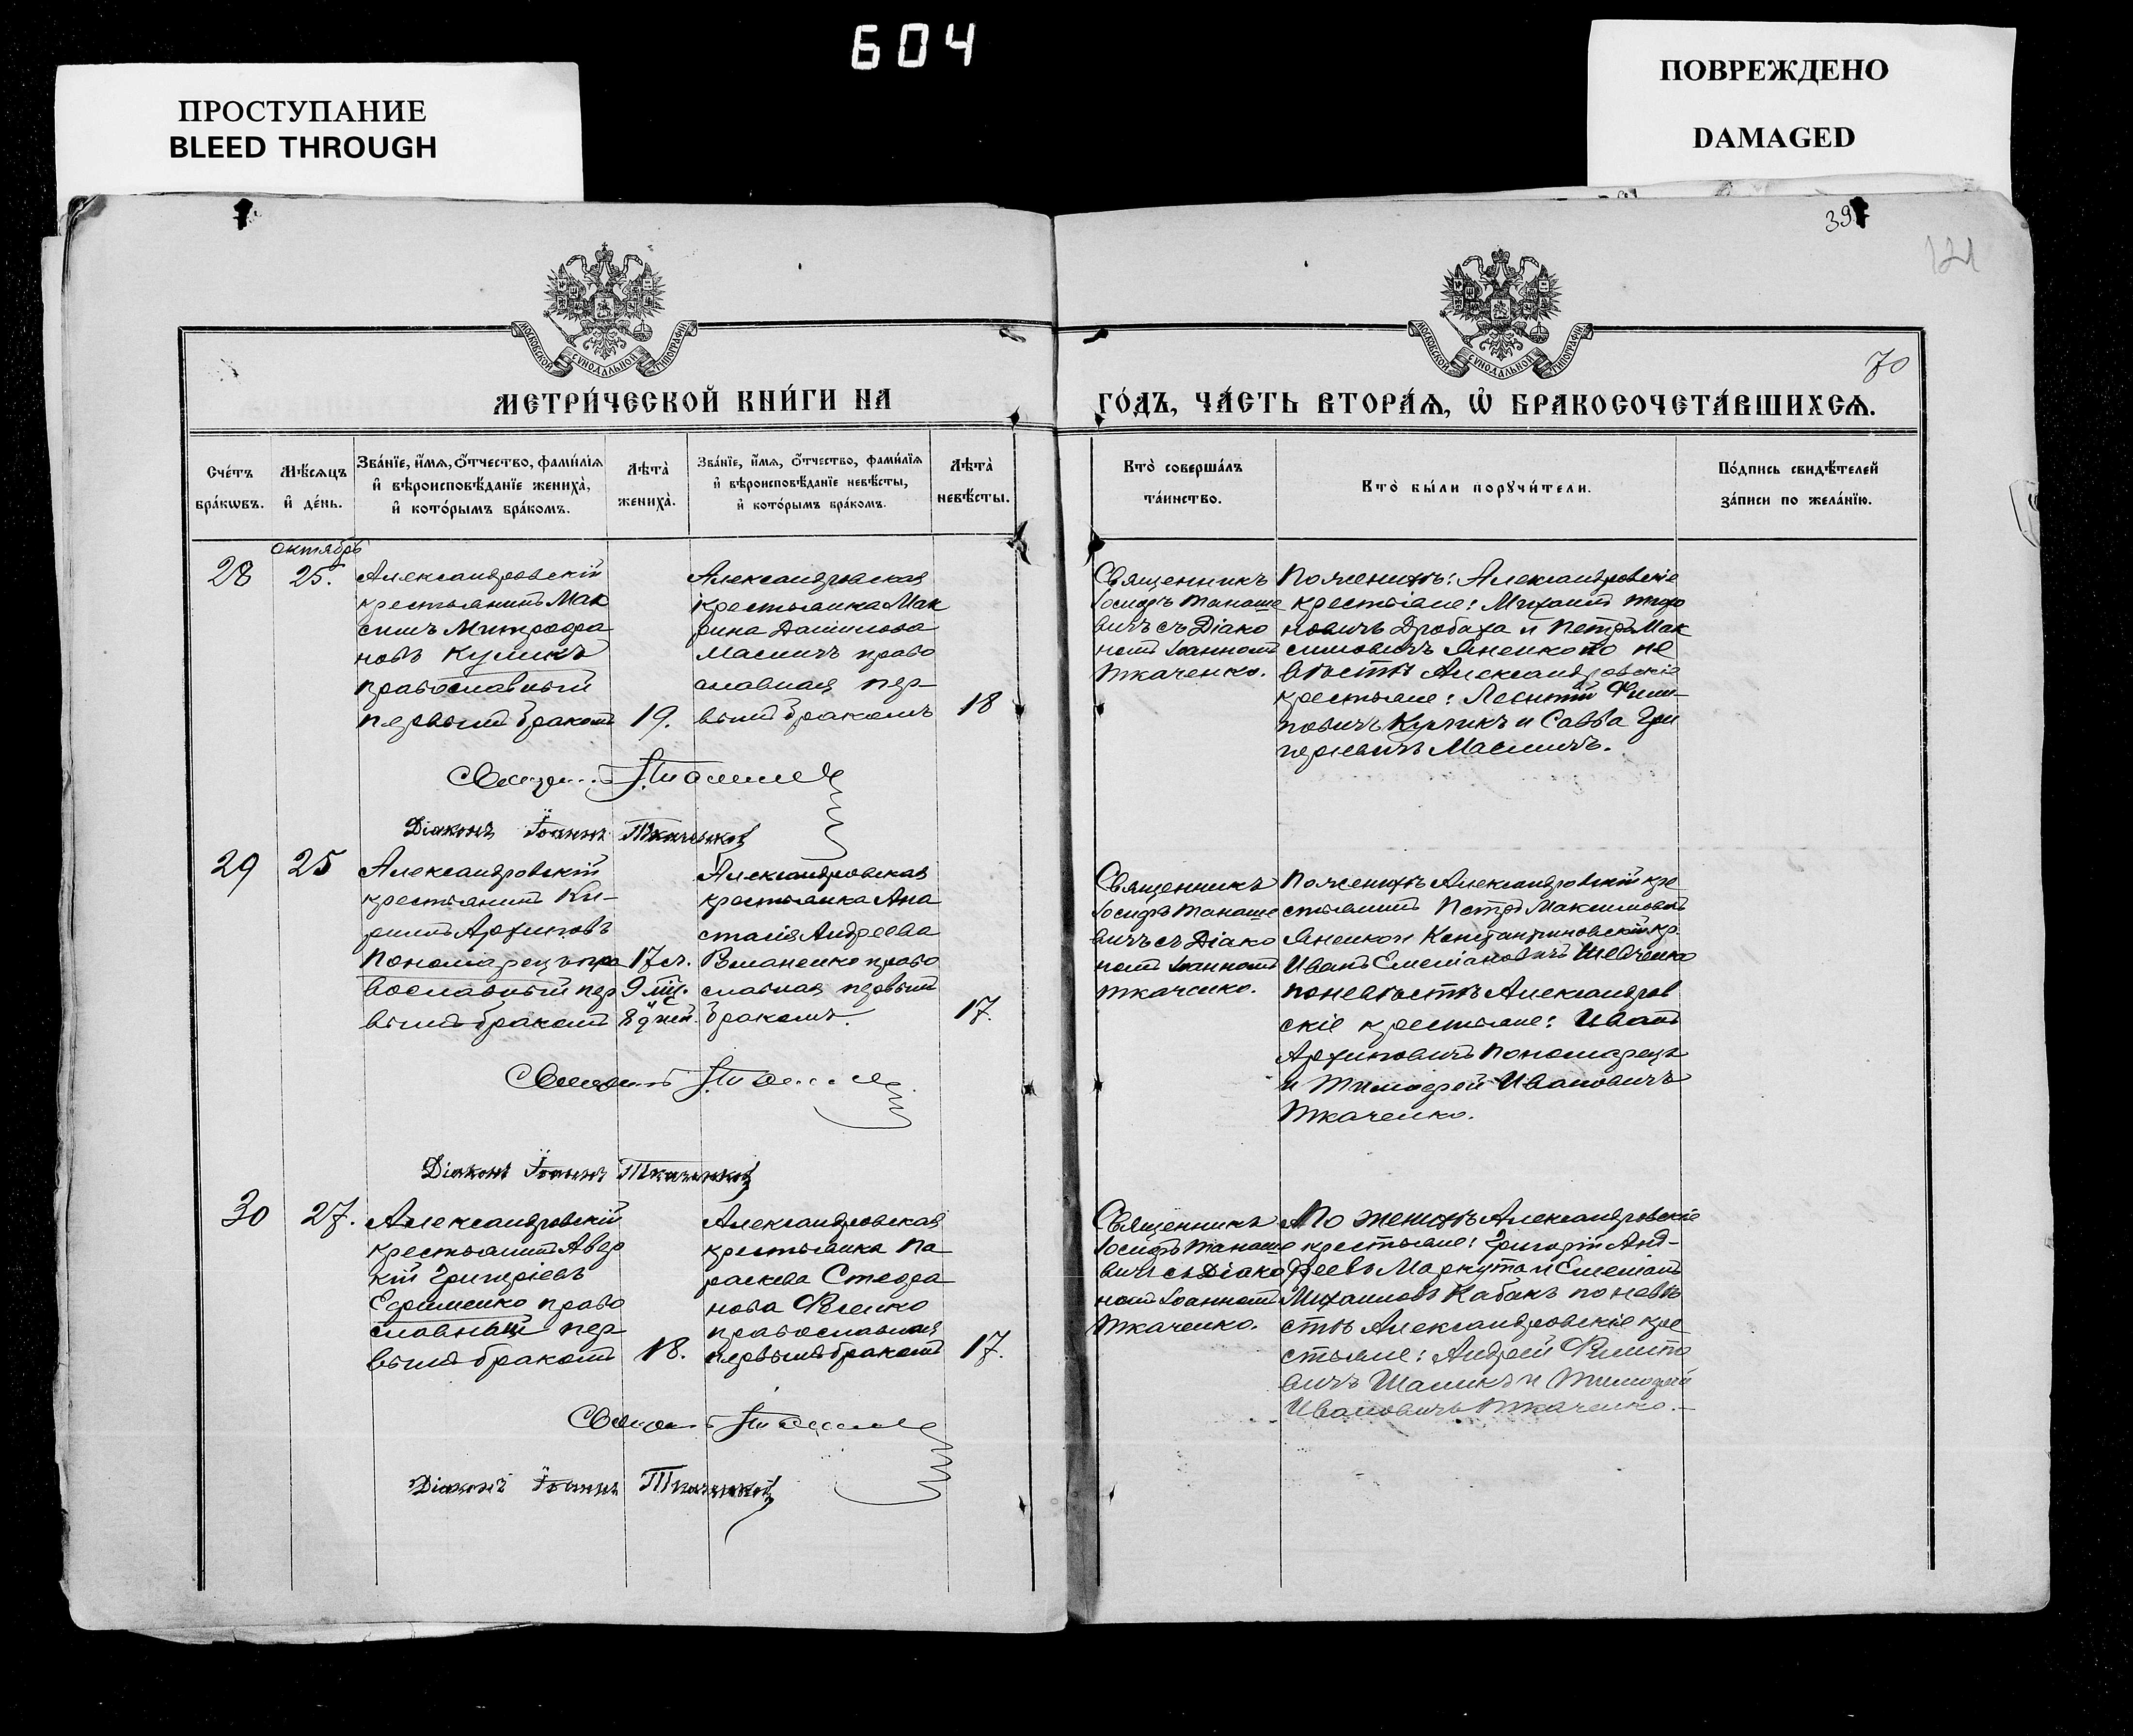 604
ПРОСТУПАНИЕ
BLEED THROUGH
ПОВРЕЖДЕНО
DAMAGED
397
121
МОСКОВСКОЙ СѴНОДАЛЬНОЙ ТИПОГРАФІИ
МОСКОВСКОЙ СѴНОДАЛЬНОЙ ТИПОГРАФІИ
70
МЕТРИ́ЧЕСКОЙ КНИ́ГИ НА
ГО́ДЪ, ЧА́СТЬ ВТОРА́Ѧ, Ѡ҆ БРАКОСОЧЕТА́ВШИХСѦ.
Сче́тъ
бра́кѡвъ.
Мѣ́сѧцъ
и҆ де́нь.
Зва́нїе, и҆́мѧ, ѻ҆́тчество, фами́лїѧ
и҆ вѣроисповѣ́данїе жениха̀,
и҆ кото́рымъ бра́комъ.
Лѣта̀
жениха̀.
Зва́нїе, и҆́мѧ, ѻ҆́тчество, фами́лїѧ
и҆ вѣроисповѣ́данїе невѣ́сты,
и҆ кото́рымъ бра́комъ.
Лѣта̀
невѣ́сты.
Кто̀ соверша́лъ
та́инство.
Кто̀ бы́ли порꙋчи́тели.
По́дпись свидѣ́телей
за́писи по жела́нїю.
октябрь
28
25.
Александровскій
крестьянинъ Мак
симъ Митрофа
новъ Куликъ
православный
первымъ бракомъ
19.
Александровская
крестьянка Мак
рина Данилова
Масличъ право
славная пер-
вымъ бракомъ
18
Священникъ
Іосифъ Манаше
вичъ съ Діако
номъ Іоанномъ
Ткаченко.
По женихѣ: Александровскіе
крестьяне: Михаилъ
новичъ Дробаха и Петръ Мак
симовичъ Яненко по не
вѣстѣ Александровскіе
крестьяне: Леонтій Фили-
повичъ Куликъ и Савва Гри
горьевичъ Масличъ.
Діаконъ Іоаннъ Ткаченко
29
25
Александровскій
крестьянинъ Ки-
рилъ Архиповъ
Пономарецъ пра
вославный пер
вымъ бракомъ
17 л.
9 мц.
8 дней.
Александровская
крестьянка Ана
стасія Андреева
право
славная первымъ
бракомъ.
17.
Священникъ
Іосифъ Манаше
вичъ съ Діако
номъ Іоанномъ
Ткаченко.
По женихѣ Александровскій кре
стьянинъ Петръ Максимовъ
Яненко и Константиновскій кр.
Иванъ Емеліановичъ Шевченко
по невѣстѣ Александров
скіе крестьяне: Иванъ
Архиповичъ Пономарецъ
и Тимофей Ивановичъ
Ткаченко.
Діаконъ Іоаннъ Ткаченко
30
27.
Александровскій
крестьянинъ Авер
кій Григоріевъ
Ефименко право
славный пер-
вымъ бракомъ
18.
Александровская
крестьянка Па
раскева Стефа
нова
православная
первымъ бракомъ
17.
Священникъ
Іосифъ Манаше
вичъ съ Діако
номъ Іоанномъ
Ткаченко.
По женихѣ Александровскіе
крестьяне: Григорій Анд-
реевъ Маркута и Емеліанъ
Михаиловъ Кабакъ по невѣ
стѣ Александровскіе кре
стьяне: Андрей Филипо
вичъ Шаликъ и Тимофей
Ивановичъ Ткаченко.-
Діаконъ Іоаннъ Ткаченко